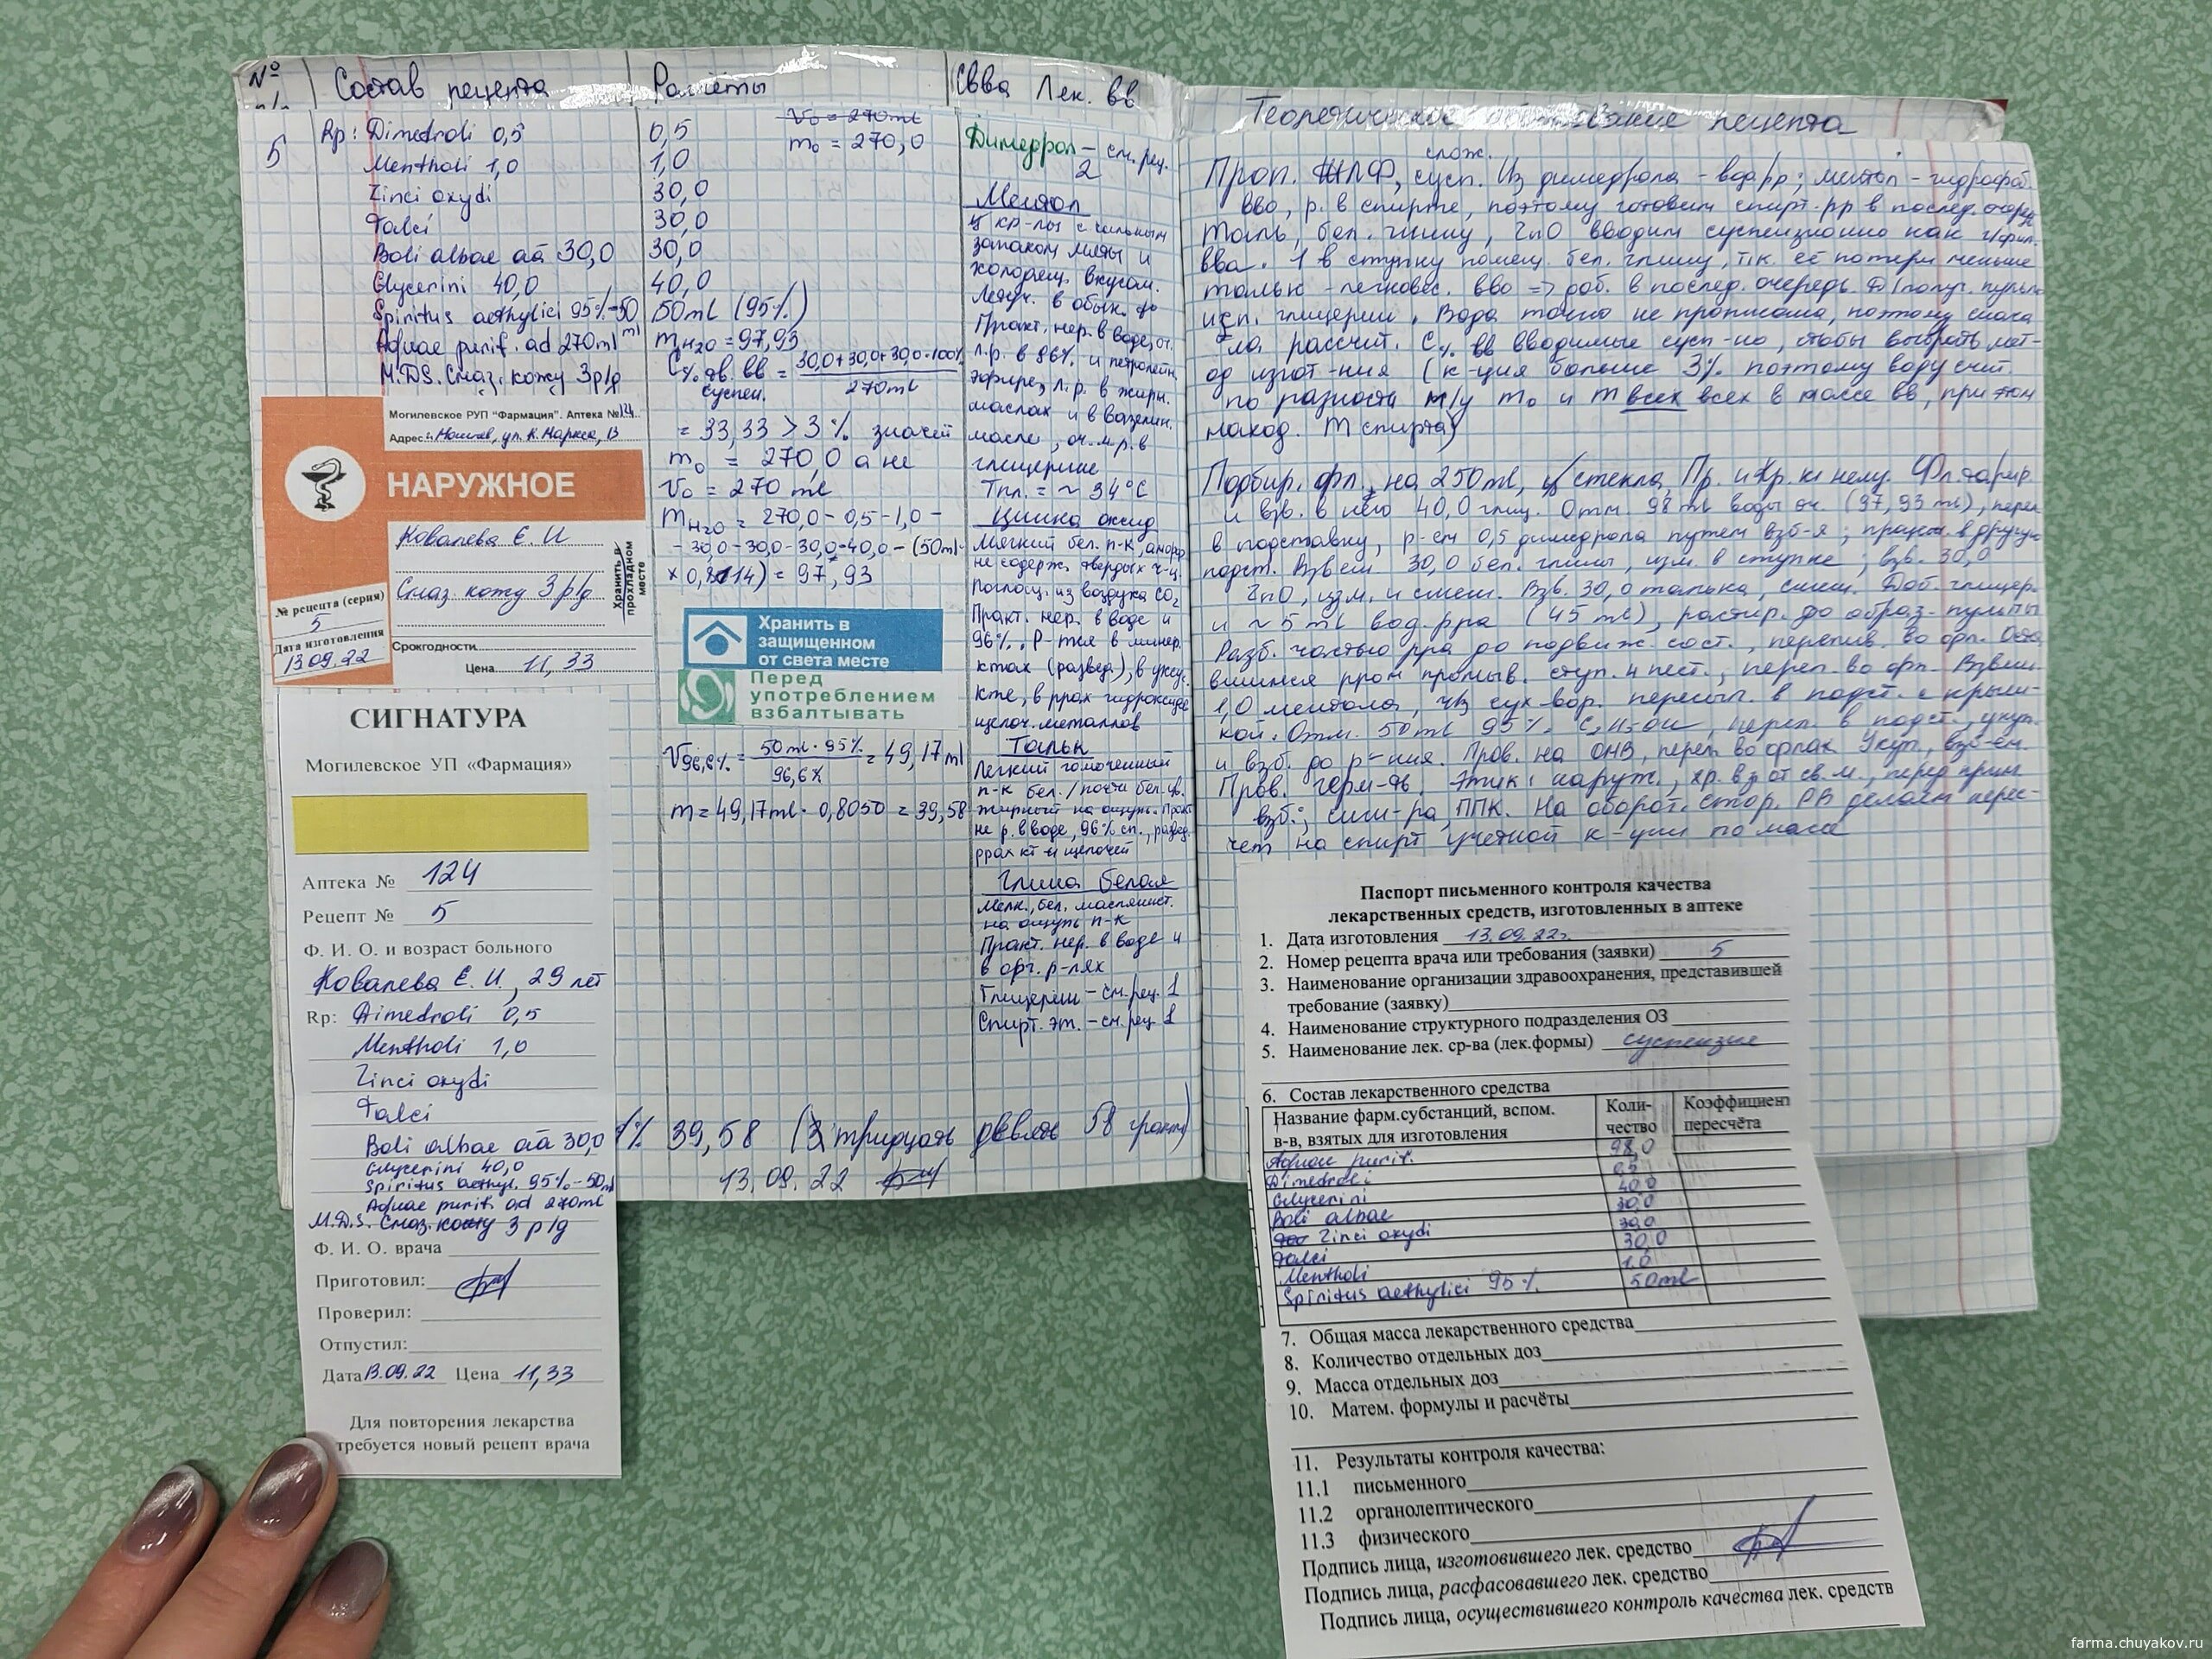 № п/п
Состав рецепта
Расчёты
Свва Лек. вв
5
Rp: Dimedroli 0,5
Mentholi 1,0
Zinci oxydi
Talci
Boli albae aa 30,0
Glycerini 40,0
Spiritus aethylici 95%-50 ml
Aquae purif. ad 270ml
M.D.S. Смаз. кожу 3р/д
Могилевское РУП "Фармация". Аптека №124
Адрес: Могилев, ул. К. Маркса, 13
НАРУЖНОЕ
Ковалева Е. И
Смаз. кожу 3р/д
Хранить в прохладном месте
№ рецепта (серия)
5
Дата изготовления
13.09.22
Срок годности
Цена 11,33
СИГНАТУРА
Могилевское УП «Фармация»
Аптека № 124
Рецепт № 5
Ф. И. О. и возраст больного
Ковалева Е. И., 29 лет
Rp: Dimedroli 0,5
Mentholi 1,0
Zinci oxydi
Talci
Boli albae aa 30,0
Glycerini 40,0
Spiritus aethyl. 95%-50ml
Aquae purif. ad 270ml
M.D.S. Смаз. кожу 3 р/д
Ф. И. О. врача
Приготовил:
Проверил:
Отпустил:
Дата 13.09.22 Цена 11,33
Для повторения лекарства
требуется новый рецепт врача
0,5
V₀ = 270ml
1,0
m₀ = 270,0
30,0
30,0
30,0
40,0
50ml (95%)
m H₂O = 97,93
C% тв. вв суспен. = 30,0+30,0+30,0·100% / 270ml
= 33,33 > 3% значит
m₀ = 270,0 а не
V₀ = 270 ml
m H₂O = 270,0-0,5-1,0-
-30,0-30,0-30,0-40,0-(50ml·
×0,8114) = 97,93
Хранить в
защищенном
от света месте
Перед
употреблением
взбалтывать
V96,6% = 50ml·95% / 96,6% = 49,17ml
m = 49,17ml · 0,8050 = 39,58
% 39,58 (тридцать девять 58 грамм)
13.09.22
Димедрол - см. рец. 2
Ментол
Ц кр-лы с сильным
запахом мяты и
холодящ. вкусом.
Летуч. в обык. to
Практ. нер. в воде, оч.
л.р. в 96% и петролейн.
эфире, л.р. в жирн.
маслах и в вазелин.
масле, оч. м.р. в
глицерине
Тпл. = ~ 34°C
Цинка оксид
Мягкий бел. п-к, аморф
не содерж. твердых ч-ц.
Поглощ. из воздуха CO₂
Практ. нер. в воде и
96%. Р-тся в минер.
ктах (развед.), в укс.
кте, в ррах гидроксида
щелоч. металлов
Тальк
Легкий гомогенный
п-к бел./почти бел. цв.
жирный на ощупь. Практ
не р. в воде, 96% сп., развед.
ррах кт и щелочей
Глина белая
Мелк., бел. маслянист.
на ощупь п-к
Практ. нер. в воде и
в орг. р-лях
Глицерин - см. рец. 1
Спирт. эт. - см. рец 1
Теоретическое обоснование рецепта
слож.
Проп. ЖЛФ, сусп. Из димедрола - вод рр; ментол - гидрофоб.
вво, р. в спирте, поэтому готовим спирт. рр в послед. очередь
Тальк, бел. глину, ZnO вводим суспензионно как г/фил.
вва. 1 в ступку помещ. бел. глину, т.к. её потери меньше
тальк - легковес. вво => доб. в послед. очередь. Д/получ. пульпы
исп. глицерин. Вода точно не прописана, поэтому снача
ла рассчит. C% вв вводимые сусп-но, чтобы выбрать мет-
од изгот-ния (к-ция больше 3% поэтому воду счит.
по разности м/у m₀ и m всех всех в массе вв, при этом
наход. m спирта)
Подбир. фл. на 250ml, ц/стекла, Пр. и Кр. к нему. Фл. тарир.
и взв. в него 40,0 глиц. Отм. 98 ml воды оч. (97,93 ml), перел
в подставку, р-ем 0,5 димедрола путем взб-я, процеж. в другую
подст. Взвеш 30,0 бел. глины, изм. в ступке; взв. 30,0
ZnO, изм. и смеш. Взв. 30,0 талька, смеш. Доб. глицер.
и ~ 5 ml вод. рра (45 ml), растир. до образ. пульпы
Разб. частью рра до подвиж. сост., перелив. во фл. Оста
вшимся рром промыв. ступ. и пест., перел. во фл. Взвеш.
1,0 ментола, ч/з сух. вор. пересып. в подст. с крыш-
кой. Отм. 50ml 95% C₂H₅OH, перел. в подст., укуп.
и взб. до р-ния. Пров. на ОНВ, перел. во флак. Укуп., взб-ем.
Пров. герм-ть. Этик: наруж., хр. в з от св. м., перед прим
взб.; сигн-ра, ППК. На оборот. стор. РВ делаем перес-
чет на спирт учетной к-ции по массе
Паспорт письменного контроля качества
лекарственных средств, изготовленных в аптеке
1. Дата изготовления 13.09.22г.
2. Номер рецепта врача или требования (заявки) 5
3. Наименование организации здравоохранения, представившей
требование (заявку)
4. Наименование структурного подразделения ОЗ
5. Наименование лек. ср-ва (лек.формы) суспензия
6. Состав лекарственного средства
Название фарм.субстанций, вспом. в-в, взятых для изготовления
Коли-чество
Коэффициент пересчёта
Aquae purif. 98,0
Dimedroli 0,5
Glycerini 40,0
Boli albae 30,0
Zinci oxydi 30,0
Talci 30,0
Mentholi 1,0
Spiritus aethylici 95% 50ml
7. Общая масса лекарственного средства
8. Количество отдельных доз
9. Масса отдельных доз
10. Матем. формулы и расчёты
11. Результаты контроля качества:
11.1 письменного
11.2 органолептического
11.3 физического
Подпись лица, изготовившего лек. средство
Подпись лица, расфасовавшего лек. средство
Подпись лица, осуществившего контроль качества лек. средств
farma.chuyakov.ru